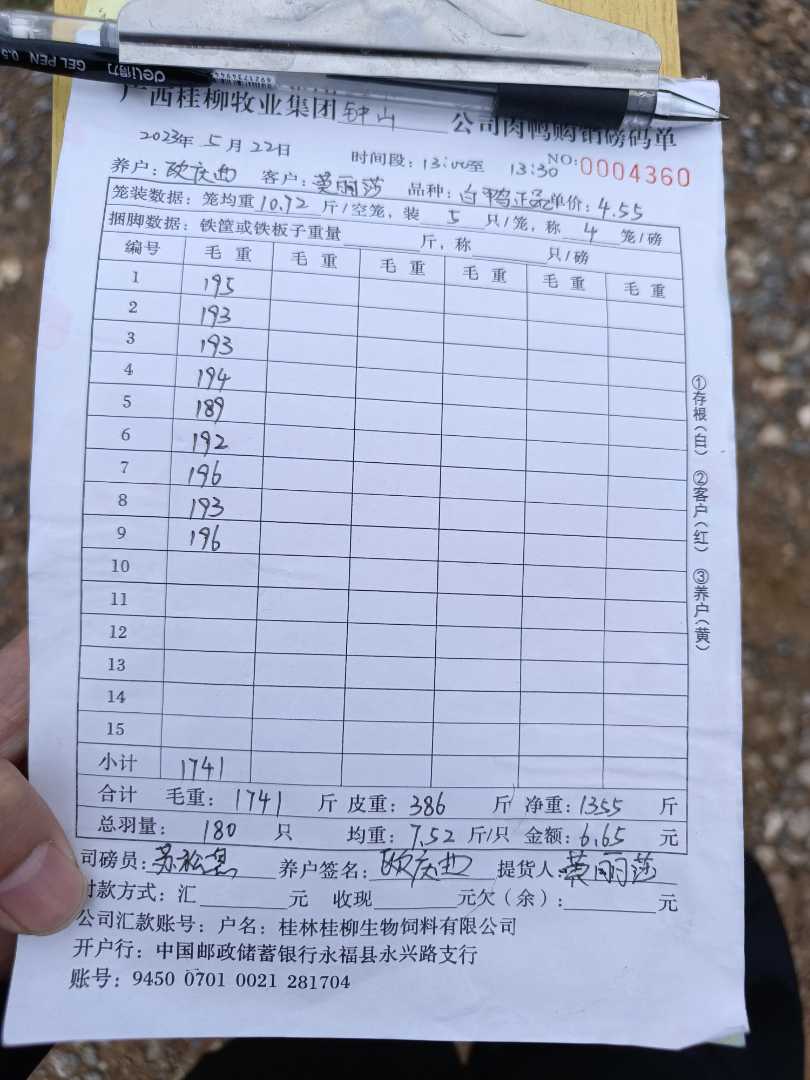 GEL PEN 0.5 deli得力 6921734944
广西桂柳牧业集团 钟山 公司肉鸭购销磅码单
2023年 5月22日 时间段：13:00至 13:30 NO:0004360
养户：欧庆曲 客户：莫丽莎 品种：白鸭正品 单价：4.55
笼装数据：笼均重10.72斤/空笼，装 5 只/笼，称 4 笼/磅
捆脚数据：铁筐或铁板子重量 斤，称 只/磅
编号 毛重 毛重 毛重 毛重 毛重 毛重
1 195
2 193
3 193
4 194
5 189
6 192
7 196
8 193
9 196
10
11
12
13
14
15
小计 1741
合计 毛重：1741 斤 皮重：386 斤 净重：1355 斤
总羽量：180 只 均重：7.52 斤/只 金额：6.65 元
司磅员： 养户签名：欧庆曲 提货人：莫丽莎
付款方式：汇 元 收现 元欠（余）： 元
公司汇款账号：户名：桂林桂柳生物饲料有限公司
开户行：中国邮政储蓄银行永福县永兴路支行
账号：9450 0701 0021 281704
①存根（白） ②客户（红） ③养户（黄）